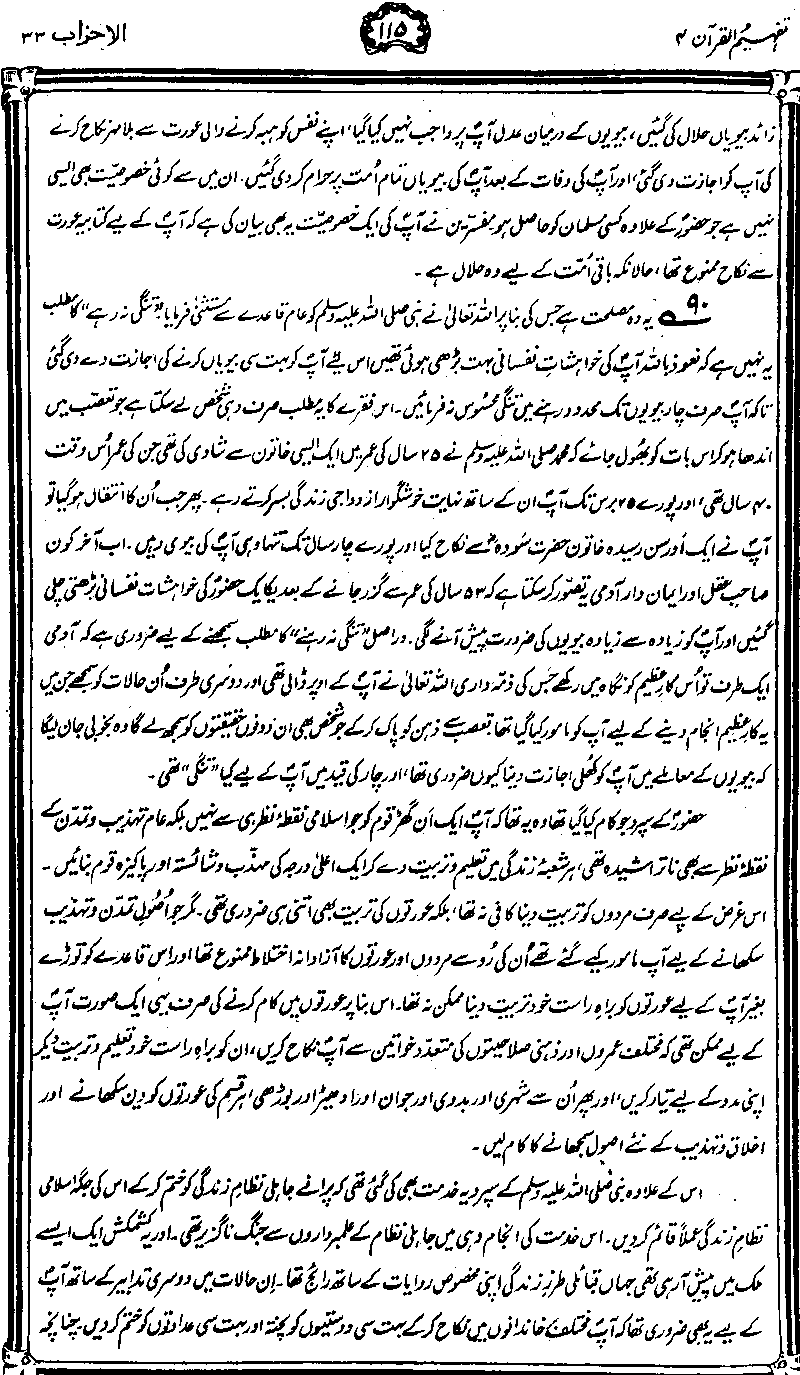 تفہیم القرآن ۴
۱۱۵
الاحزاب ۳۳
زائد بیویاں حلال کی گئیں، بیویوں کے درمیان عدل آپؐ پر واجب نہیں کیا گیا، اپنے نفس کو ہبہ کرنے والی عورت سے بلا مہر نکاح کرنے
کی آپ کو اجازت دی گئی، اور آپؐ کی وفات کے بعد آپؐ کی بیویاں تمام اُمت پر حرام کر دی گئیں۔ ان میں سے کوئی خصوصیّت بھی ایسی
نہیں ہے جو حضورؐ کے علاوہ کسی مسلمان کو حاصل ہو۔ مفسّرین نے آپؐ کی ایک خصوصیّت یہ بھی بیان کی ہے کہ آپؐ کے لیے کتابیہ عورت
سے نکاح ممنوع تھا، حالانکہ باقی اُمّت کے لیے وہ حلال ہے۔
۹۰ یہ وہ مصلحت ہے جس کی بنا پر اللہ تعالیٰ نے نبی صلی اللہ علیہ وسلم کو عام قاعدے سے مستثنیٰ فرمایا۔ "تنگی نہ رہے" کا مطلب
یہ نہیں ہے کہ نعوذ باللہ آپؐ کی خواہشاتِ نفسانی بہت بڑھی ہوئی تھیں اس لیے آپؐ کو بہت سی بیویاں کرنے کی اجازت دے دی گئی
تاکہ آپؐ صرف چار بیویوں تک محدود رہنے میں تنگی محسوس نہ فرمائیں۔ اس فقرے کا یہ مطلب صرف وہی شخص لے سکتا ہے جو تعصّب میں
اندھا ہو کر اس بات کو بھول جائے کہ محمد صلی اللہ علیہ وسلم نے ۲۵ سال کی عمر میں ایک ایسی خاتون سے شادی کی تھی جن کی عمر اُس وقت
۴۰ سال تھی، اور پورے ۲۵ برس تک آپؐ ان کے ساتھ نہایت خوشگوار ازدواجی زندگی بسر کرتے رہے۔ پھر جب اُن کا انتقال ہو گیا تو
آپؐ نے ایک اَور سن رسیدہ خاتون حضرت سَودہؓ سے نکاح کیا اور پورے چار سال تک تنہا وہی آپؐ کی بیوی رہیں۔ اب آخر کون
صاحبِ عقل اور ایمان دار آدمی یہ تصوّر کر سکتا ہے کہ ۵۳ سال کی عمر سے گزر جانے کے بعد یکایک حضورؐ کی خواہشات نفسانی بڑھتی چلی
گئیں اور آپؐ کو زیادہ سے زیادہ بیویوں کی ضرورت پیش آنے لگی۔ دراصل "تنگی نہ رہنے" کا مطلب سمجھنے کے لیے ضروری ہے کہ آدمی
ایک طرف تو اُس کارِ عظیم کو نگاہ میں رکھے جس کی ذمّہ داری اللہ تعالیٰ نے آپؐ کے اوپر ڈالی تھی اور دوسری طرف اُن حالات کو سمجھے جن میں
یہ کارِ عظیم انجام دینے کے لیے آپ کو مامور کیا گیا تھا۔ تعصب سے ذہن کو پاک کر کے جو شخص بھی ان دونوں حقیقتوں کو سمجھ لے گا وہ بخوبی جان لیگا
کہ بیویوں کے معاملے میں آپؐ کو کھلی اجازت دینا کیوں ضروری تھا، اور چار کی قید میں آپؐ کے لیے کیا "تنگی" تھی۔
حضورؐ کے سپرد جو کام کیا گیا تھا وہ یہ تھا کہ آپؐ ایک اَن گھڑ قوم کو جو اسلامی نقطۂ نظر ہی سے نہیں بلکہ عام تہذیب و تمدّن کے
نقطۂ نظر سے بھی ناتراشیدہ تھی، ہر شعبۂ زندگی میں تعلیم و تربیت دے کر ایک اعلیٰ درجہ کی مہذّب و شائستہ اور پاکیزہ قوم بنائیں۔
اس غرض کے لیے صرف مردوں کو تربیت دینا کافی نہ تھا، بلکہ عورتوں کی تربیت بھی اتنی ہی ضروری تھی۔ مگر جو اُصولِ تمدّن و تہذیب
سکھانے کے لیے آپ مامور کیے گئے تھے اُن کی رُو سے مردوں اور عورتوں کا آزادانہ اختلاط ممنوع تھا اور اس قاعدے کو توڑے
بغیر آپؐ کے لیے عورتوں کو براہِ راست خود تربیت دینا ممکن نہ تھا۔ اس بنا پر عورتوں میں کام کرنے کی صرف یہی ایک صورت آپؐ
کے لیے ممکن تھی کہ مختلف عمروں اور ذہنی صلاحیتوں کی متعدّد خواتین سے آپؐ نکاح کریں، ان کو براہِ راست خود تعلیم و تربیت دیکر
اپنی مدد کے لیے تیار کریں، اور پھر اُن سے شہری اور بدوی اور جوان اور ادھیڑ اور بوڑھی، ہر قسم کی عورتوں کو دین سکھانے اور
اخلاق و تہذیب کے نئے اصول سمجھانے کا کام لیں۔
اس کے علاوہ نبی صلی اللہ علیہ وسلم کے سپرد یہ خدمت بھی کی گئی تھی کہ پرانے جاہلی نظامِ زندگی کو ختم کر کے اس کی جگہ اسلامی
نظامِ زندگی عملاً قائم کر دیں۔ اس خدمت کی انجام دہی میں جاہلی نظام کے علمبرداروں سے جنگ ناگزیر تھی۔ اور یہ کشمکش ایک ایسے
ملک میں پیش آ رہی تھی جہاں قبائلی طرزِ زندگی اپنی مخصوص روایات کے ساتھ رائج تھا۔ اِن حالات میں دوسری تدابیر کے ساتھ آپؐ
کے لیے یہ بھی ضروری تھا کہ آپؐ مختلف خاندانوں میں نکاح کر کے بہت سی دوستیوں کو پختہ اور بہت سی عداوتوں کو ختم کر دیں۔ چنانچہ